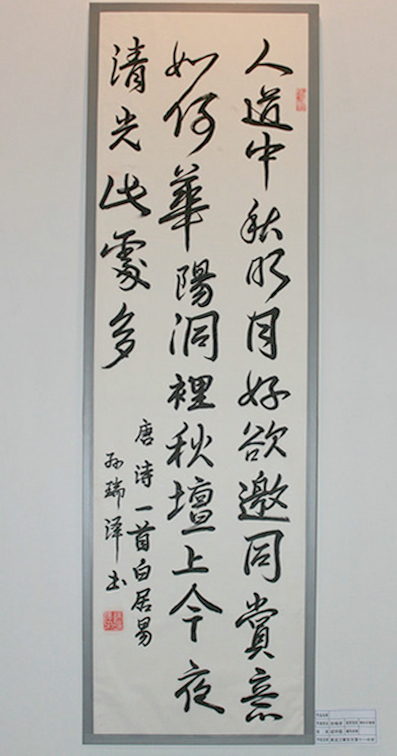 人道中秋明月好欲邀同賞意
如何華陽洞裡秋壇上今夜
清光此處多
唐诗一首白居易
孙瑞泽书